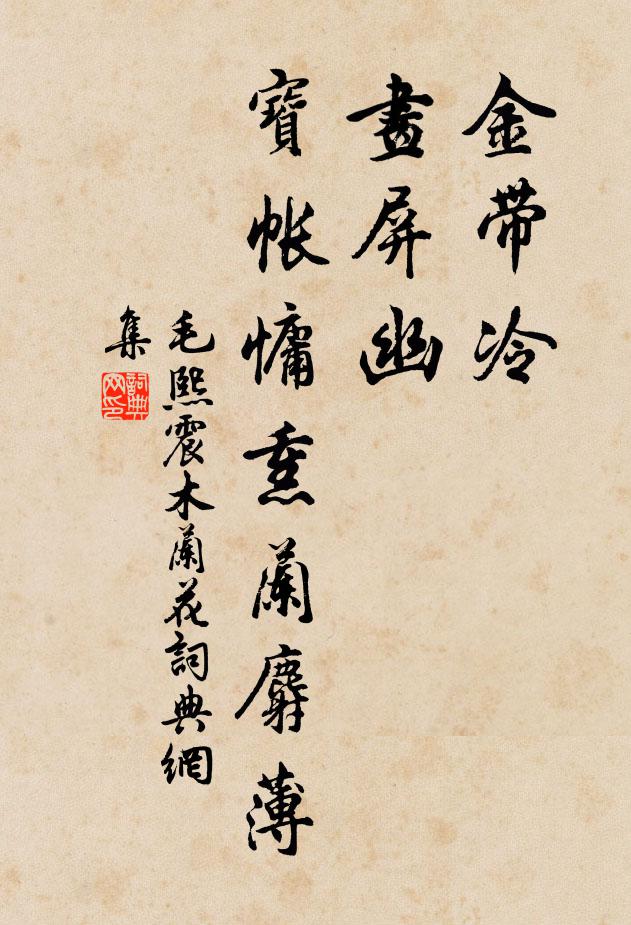 金帶冷
畫屏幽
寶帳慵熏蘭麝薄
毛熙震木蘭花詞典網
集
詞典网印